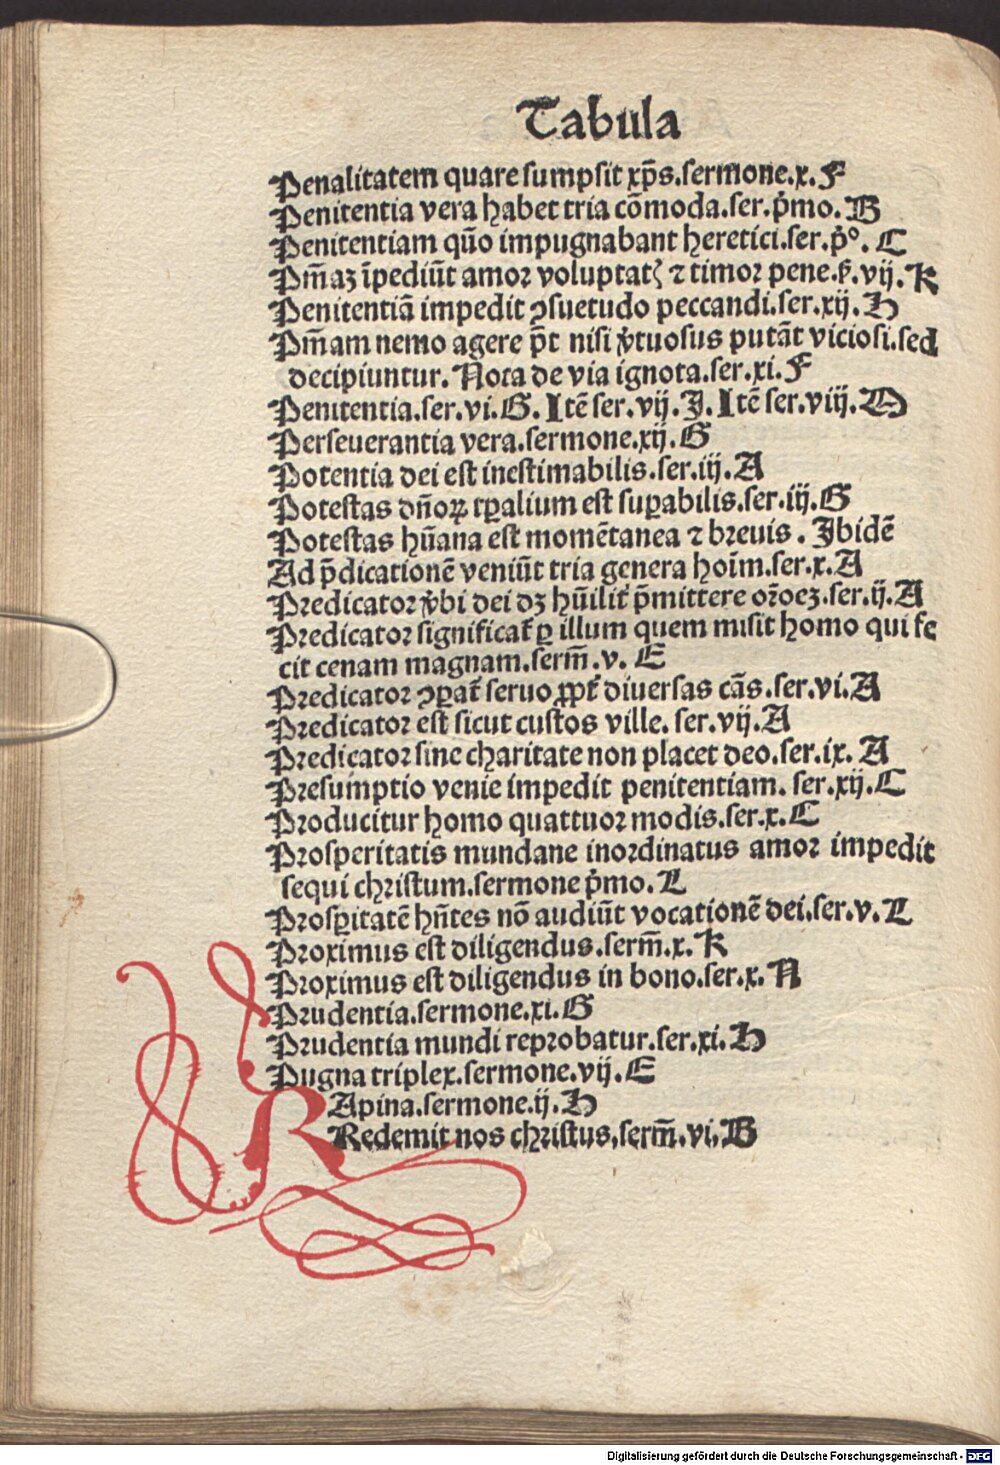 Tabula
Penalitatem quare sumpsit xp̄s.sermone.x.F
Penitentia vera habet tria cōmoda.ser.p̄mo.B
Penitentiam quō impugnabant heretici.ser.p̄º.C
Pm̄aꝫ īpediūt amor voluptatꝭ ⁊ timor pene.s̄.vij.K
Penitentiā impedit ꝯsuetudo peccandi.ser.xij.H
Pm̄am nemo agere pōt nisi v̓tuosus putāt viciosi.sed
decipiuntur. Nota de via ignota.ser.xi.F
Penitentia.ser.vi.G. Itē ser.vij.J. Itē ser.viij.O
Perseuerantia vera.sermone.xij.G
Potentia dei est inestimabilis.ser.iij.A
Potestas dn̄oꝝ tꝑalium est suꝑabilis.ser.iij.G
Potestas hūana est momētanea ⁊ breuis. Ibidē
Ad p̄dicationē veniūt tria genera hoīm.ser.x.A
Predicator v̓bi dei dꝫ hūilit̓ p̄mittere or̄oeꝫ.ser.ij.A
Predicator significat̓ ꝑ illum quem misit homo qui fe
cit cenam magnam.serm̄.v. E
Predicator ꝯꝑat̓ seruo ꝓpt̓ diuersas cās.ser.vi.A
Predicator est sicut custos ville. ser.vij.A
Predicator sine charitate non placet deo.ser.ix. A
Presumptio venie impedit penitentiam. ser.xij.C
Producitur homo quattuor modis.ser.x.C
Prosperitatis mundane inordinatus amor impedit
sequi christum.sermone p̄mo.L
Prosꝑitatē hn̄tes nō audiūt vocationē dei.ser.v.L
Proximus est diligendus.serm̄.x.K
Proximus est diligendus in bono.ser.x.N
Prudentia.sermone.xi.G
Prudentia mundi reprobatur.ser.xi.H
Pugna triplex.sermone.vij.E
RApina.sermone.ij.H
Redemit nos christus.serm̄.vi.B
Digitalisierung gefördert durch die Deutsche Forschungsgemeinschaft - DFG